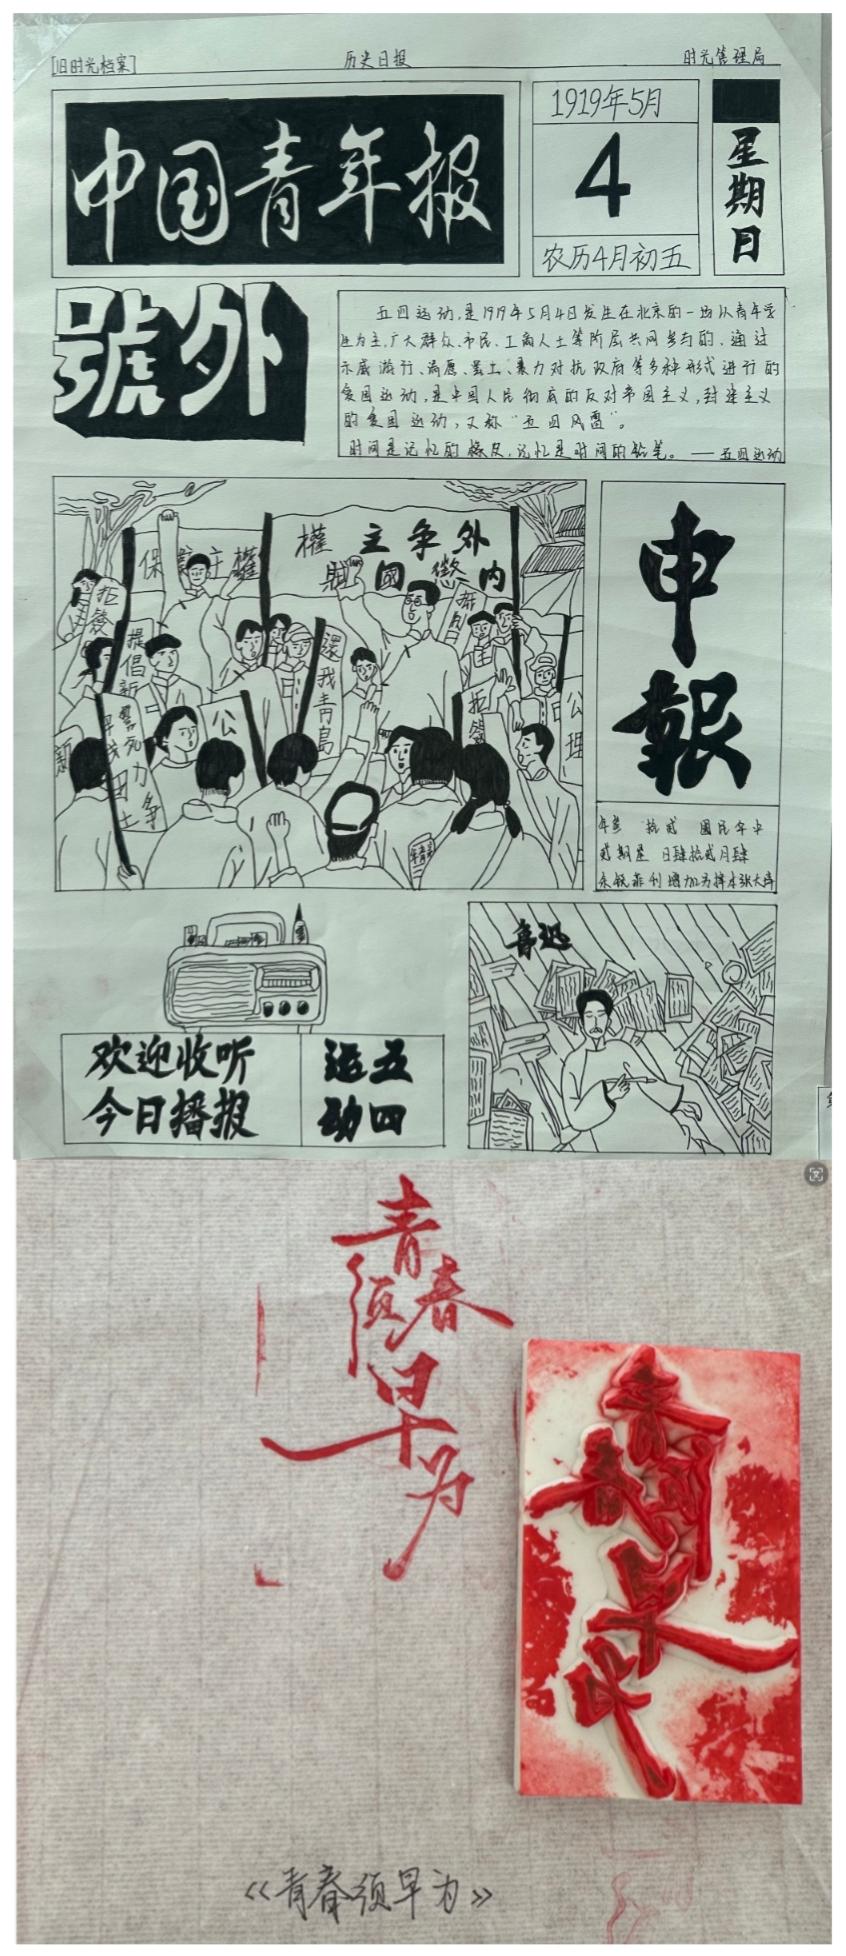 [旧时光档案]
历史日报
时光管理局
中国青年报
1919年5月
4
农历4月初五
星期日
號外
五四运动,是1919年5月4日发生在北京的一场以青年学
生为主,广大群众、市民、工商人士等阶层共同参与的,通过
示威游行、请愿、罢工、暴力对抗政府等多种形式进行的
爱国运动,是中国人民彻底的反对帝国主义,封建主义
的爱国运动,又称“五四风雷”。
时间是记忆的橡皮,记忆是时间的铅笔。——五四运动
保護主權
權主争外
賊國懲内
拒簽
提倡新
誓死力争
還我青島
公
抵制日
拒簽
公理
新
申報
國民年中
欢迎收听
今日播报
运五
动四
鲁迅
青春须早为
《青春须早为》